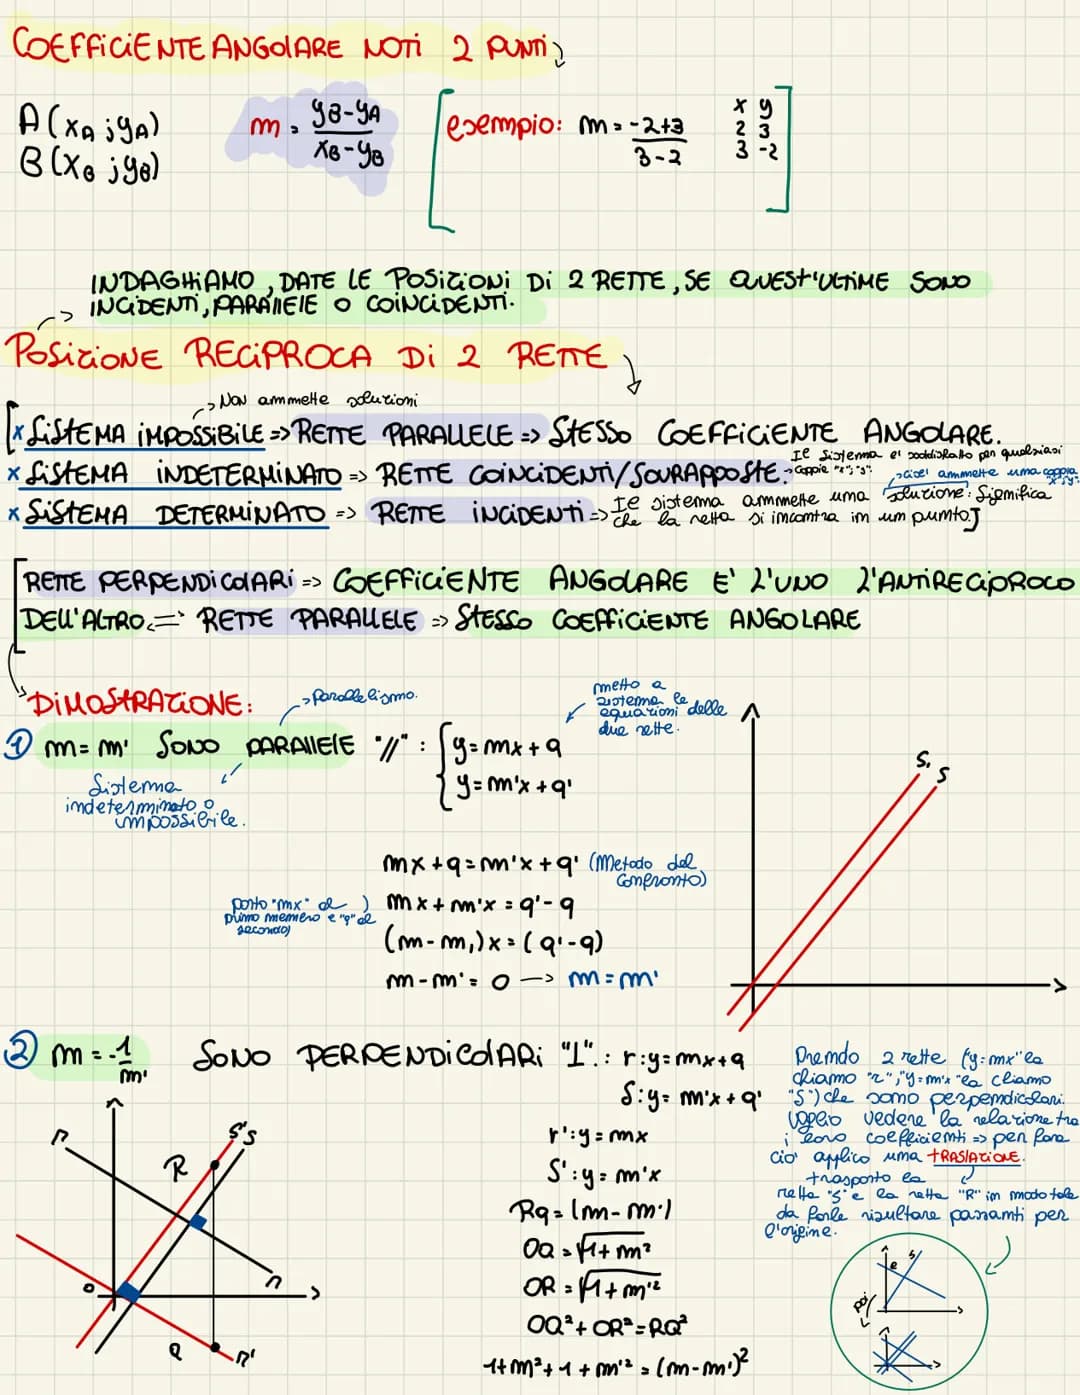 COEFFICIENTE ANGOLARE NOTI 2 PUNTI
A(xA ; yA)
B(xB ; yB)
m = yB-yA / xB-yB
esempio: m = -2+3 / 3-2
x y
2 3
3 -2
INDAGHIAMO, DATE LE POSIZIONI DI 2 RETTE, SE QUEST'ULTIME SONO
INCIDENTI, PARALLELE O COINCIDENTI.
POSIZIONE RECIPROCA DI 2 RETTE
-> Non ammette soluzioni
x SISTEMA IMPOSSIBILE => RETTE PARALLELE => STESSO COEFFICIENTE ANGOLARE.
x SISTEMA INDETERMINATO => RETTE COINCIDENTI/SOVRAPPOSTE. -> Il sistema e' soddisfatto per qualsiasi
coppia "x";"y".
-> cioe' ammette una coppia
"x";"y".
x SISTEMA DETERMINATO => RETTE INCIDENTI => Il sistema ammette una soluzione: Significa
che la retta si incontra in un punto.]
RETTE PERPENDICOLARI => COEFFICIENTE ANGOLARE E' L'UNO L'ANTIRECIPROCO
DELL'ALTRO. => RETTE PARALLELE => STESSO COEFFICIENTE ANGOLARE
DIMOSTRAZIONE:
-> Parallelismo.
metto a
sistema le
equazioni delle
due rette.
① m = m' SONO PARALLELE "//" : { y = mx + q
y = m'x + q'
Sistema
indeterminato o
impossibile.
S, S
mx + q = m'x + q' (Metodo del
Confronto)
porto "mx" al
primo memero e "q" al
secondo)
mx + m'x = q' - q
(m - m,)x = (q' - q)
m - m' = 0 -> m = m'
② m = -1/m' SONO PERPENDICOLARI "⊥".: r: y = mx + q
S: y = m'x + q'
r': y = mx
S': y = m'x
RQ = |m - m'|
OQ = √1 + m²
OR = √1 + m'²
OQ² + OR² = RQ²
1 + m² + 1 + m'² = (m - m')²
Prendo 2 rette ("y=mx" la
chiamo "r", "y=m'x" la chiamo
"S") che sono perpendicolari.
Voglio vedere la relazione tra
i loro coefficienti => per fare
cio' applico una TRASLAZIONE.
trasporto la
retta "S" e la retta "R" in modo tale
da farle risultare passanti per
l'origine.
r
R
S'S
O
r
Q
r'
s
poi